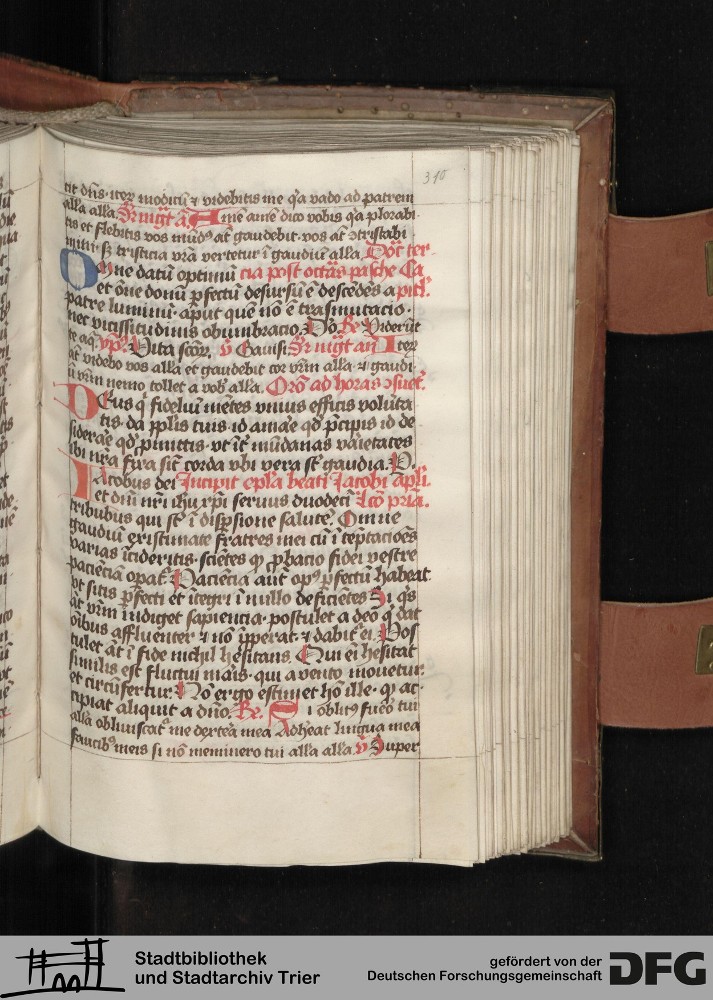 310
tit dn̄s· iteꝝ modicū ⁊ videbitis me q̄a vado ad patrem
alla alla. Sr̄ mḡt ā Amē amē dico vobis q̄a plorabi
tis et flebitis vos mūdꝰ at̄ gaudebit· vos at̄ ↄtristabi
mini· sꝫ tristicia vr̄a vertetur ī gaudiū alla. Dōc ter
Omne datū optimū cia post octās pasche Ca
et ōne donū p̄fectū desursū ē descēdēs a pitl̄.
patre luminū· aput quē nō ē trāsmutacio·
nec vicissitudinis obumbracio. Dō Rx̄ Viderūt
te aq̄. vp̄ꝰ Vita sctōꝝ. v̄ Gavisi Sr̄ mḡt an̄ Iteꝝ
at̄ videbo vos alla et gaudebit cor vrm̄ alla· ⁊ gaudi
ū vrm̄ nemo tollet a vobˢ alla. Orō ad horas ↄsuet̄.
Deus q̄ fideliū mētes vnius efficis volūta
tis· da pplīs tuis· id amāe qd̄ p̄cipis id de
siderāe qd̄ p̄mittis· vt īt̄ mūdanas vāietates
ibi nr̄a fixa sīt corda vbi vera sт̄ gaudia. P.
Iacobus dei Incipit epl̄a beati Jacobi apl̄i.
et dn̄i nr̄i ihu xp̄i servus duodecī lc̄o pria.
tribubus qui sт̄ ī disp̄sione salutē. Omne
gaudiū existimate fratres mei cū ī tēptacioēs
varias īcideritis· sciētes qꝫ p̄bacio fidei vestre
paciēcia opat̄ Paciēcia aūt opꝰ p̄fectū habeat
vt sitis p̄fecti et ītegri ī nullo deficiētes Si q̄s
āt vrm̄ īndiget sapiencia· postulet a deo q̄ dat
oībus affluenter ⁊ nō īpperat· ⁊ dabit̄ ei. Pos
tulet āt ī fide nichil hesitans. Qui eī hesitat
similis est fluctui māis· qui a vento movetur·
et circūfertur. Nō ergo estimet hō ille· qꝫ ac·
cipiat aliquit a dn̄o. Rx̄. Si oblitꝰ fuēo tui
alla obliviscat̄ me dextēa mea Adheat lingua mea
faucibꝰ meis si nō meminero tui alla alla. v̄ Super
Stadtbibliothek
und Stadtarchiv Trier
gefördert von der
Deutschen Forschungsgemeinschaft
DFG